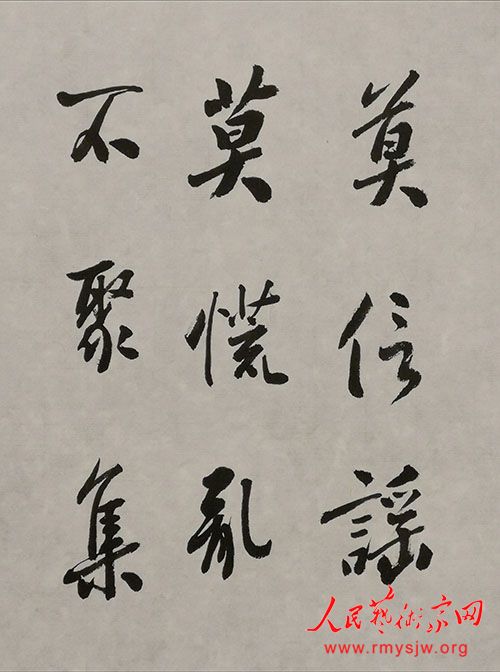 莫信謠
莫慌亂
不聚集
人民藝術家网
www.rmysjw.org